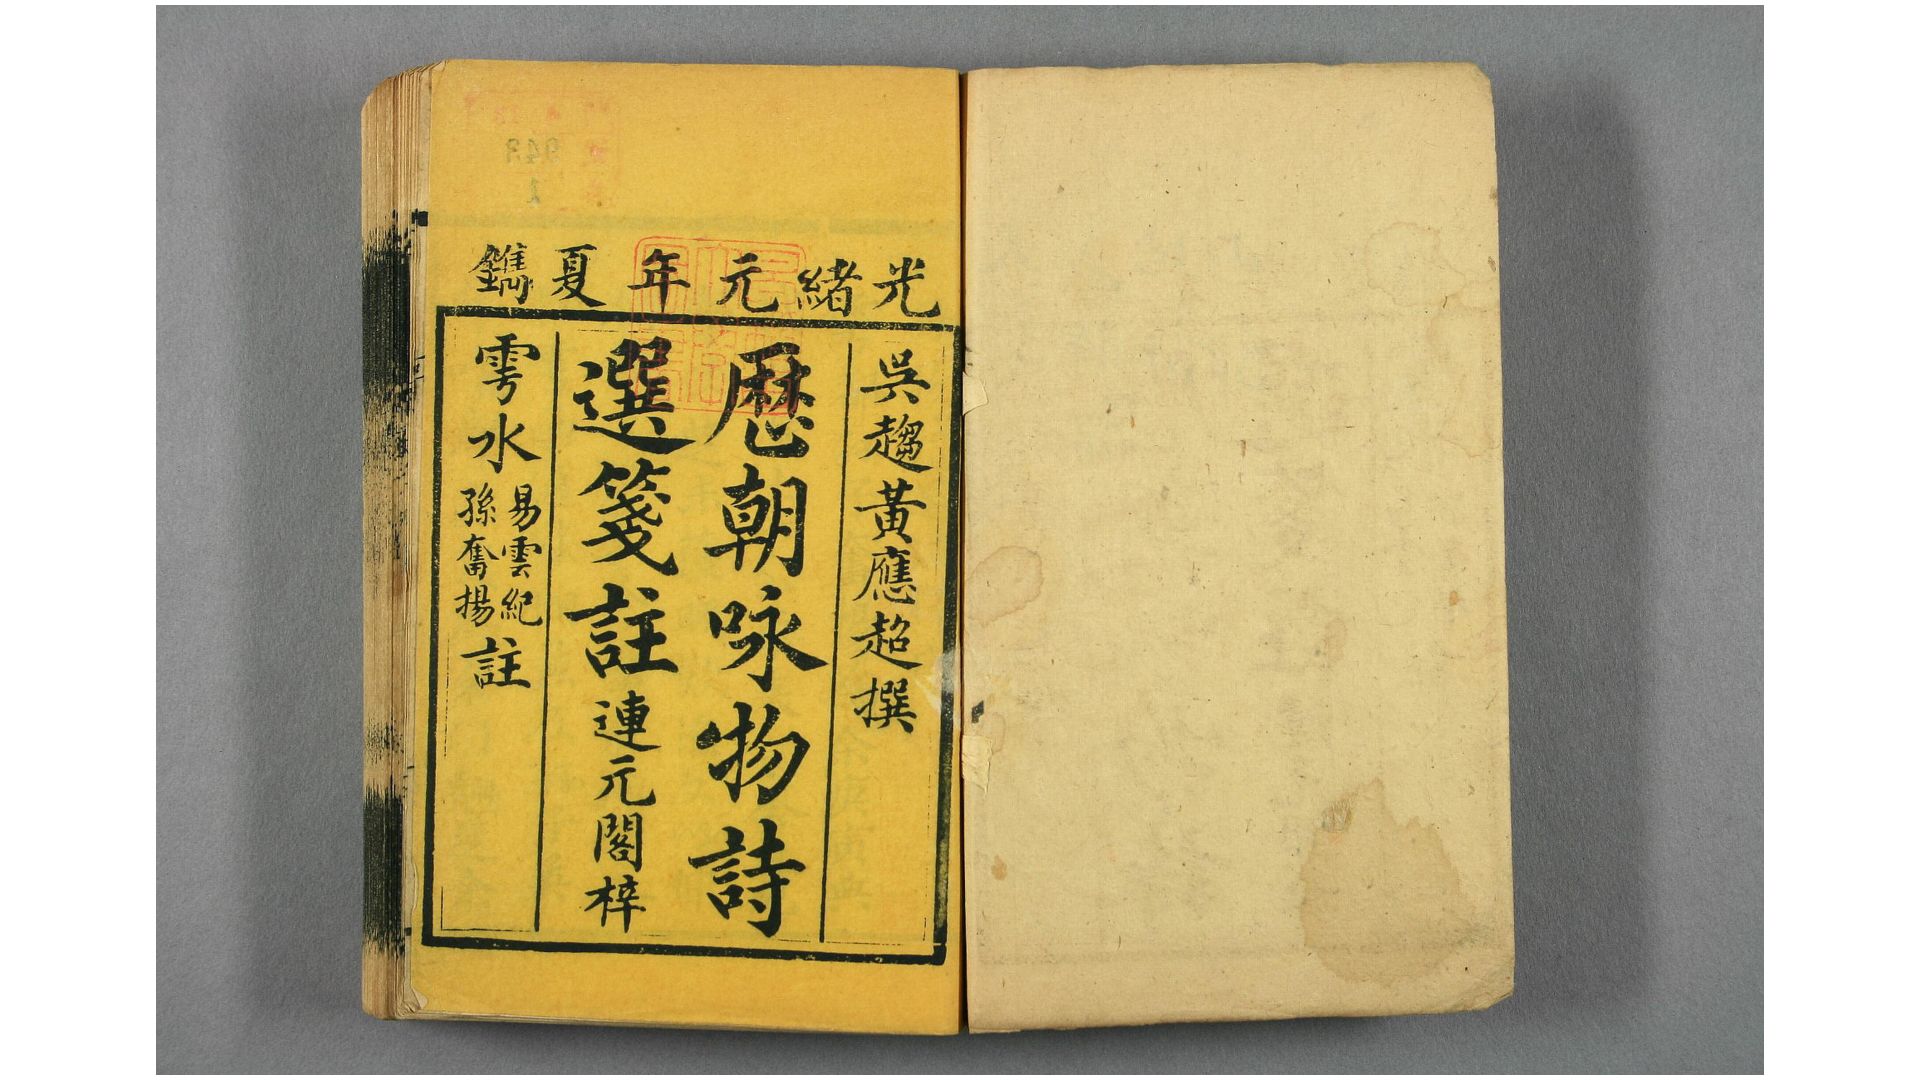 光緒元年夏鐫
吳趨黃應超撰
歷朝咏物詩
選箋註連元閣梓
雩水易雲紀孫奮揚註
948
1